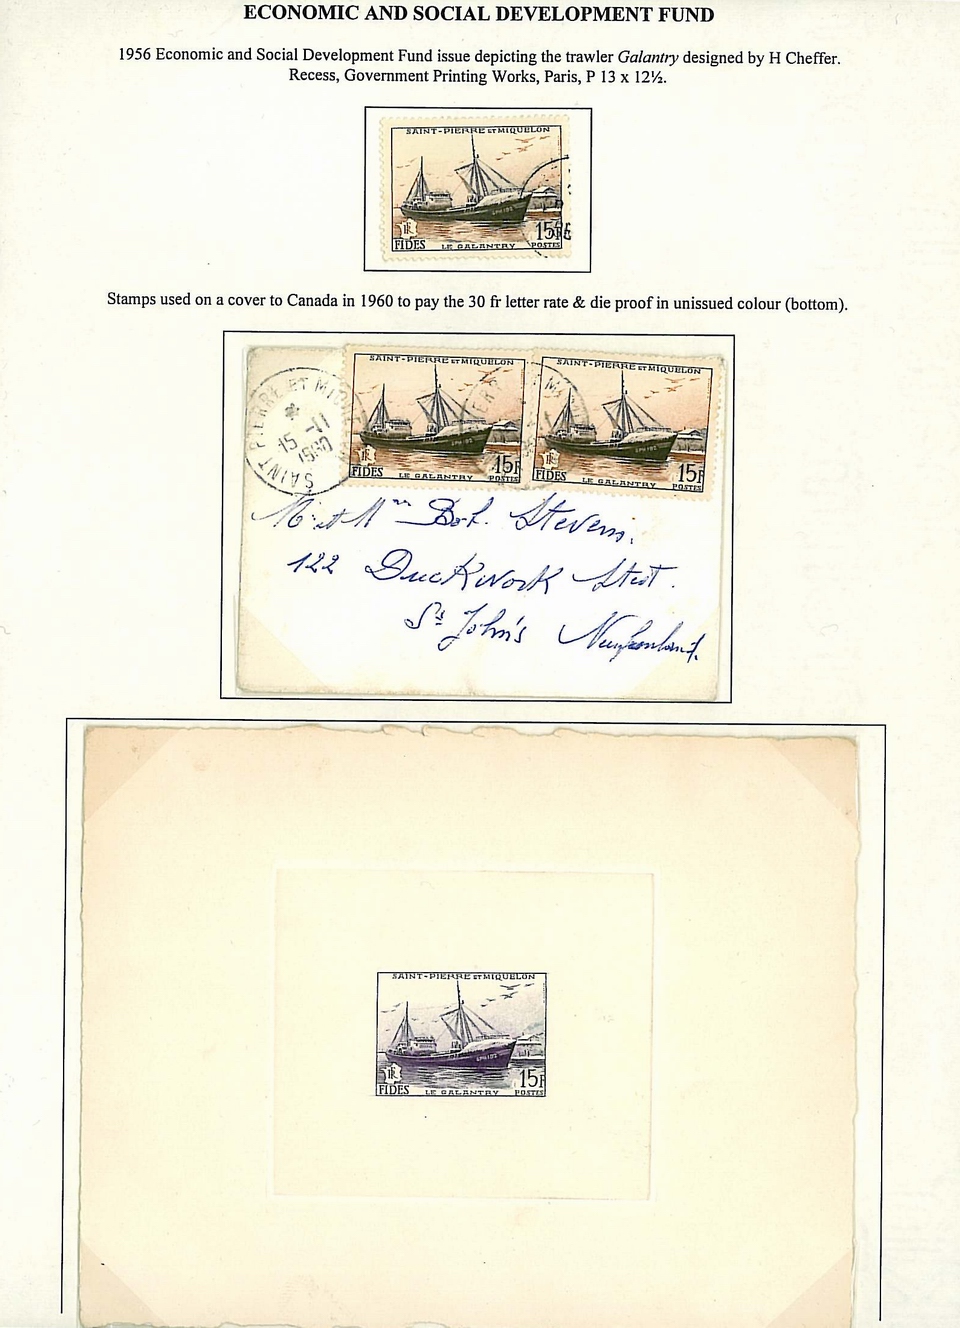 ECONOMIC AND SOCIAL DEVELOPMENT FUND
1956 Economic and Social Development Fund issue depicting the trawler Galantry designed by H Cheffer.
Recess, Government Printing Works, Paris, P 13 x 12½.
SAINT-PIERRE ET MIQUELON
SPH 192
15F
FIDES LE GALANTRY POSTES
Stamps used on a cover to Canada in 1960 to pay the 30 fr letter rate & die proof in unissued colour (bottom).
SAINT-PIERRE ET MIQUELON
SPH 192
15F
FIDES LE GALANTRY POSTES
SAINT-PIERRE ET MIQUELON
SPH 192
15F
FIDES LE GALANTRY POSTES
SAINT PIERRE ET
15-11
1960
M. et Mme Bob. Stevens.
122 Duckwork Street.
St John's Newfoundland.
SAINT-PIERRE ET MIQUELON
SPH 192
15F
FIDES LE GALANTRY POSTES